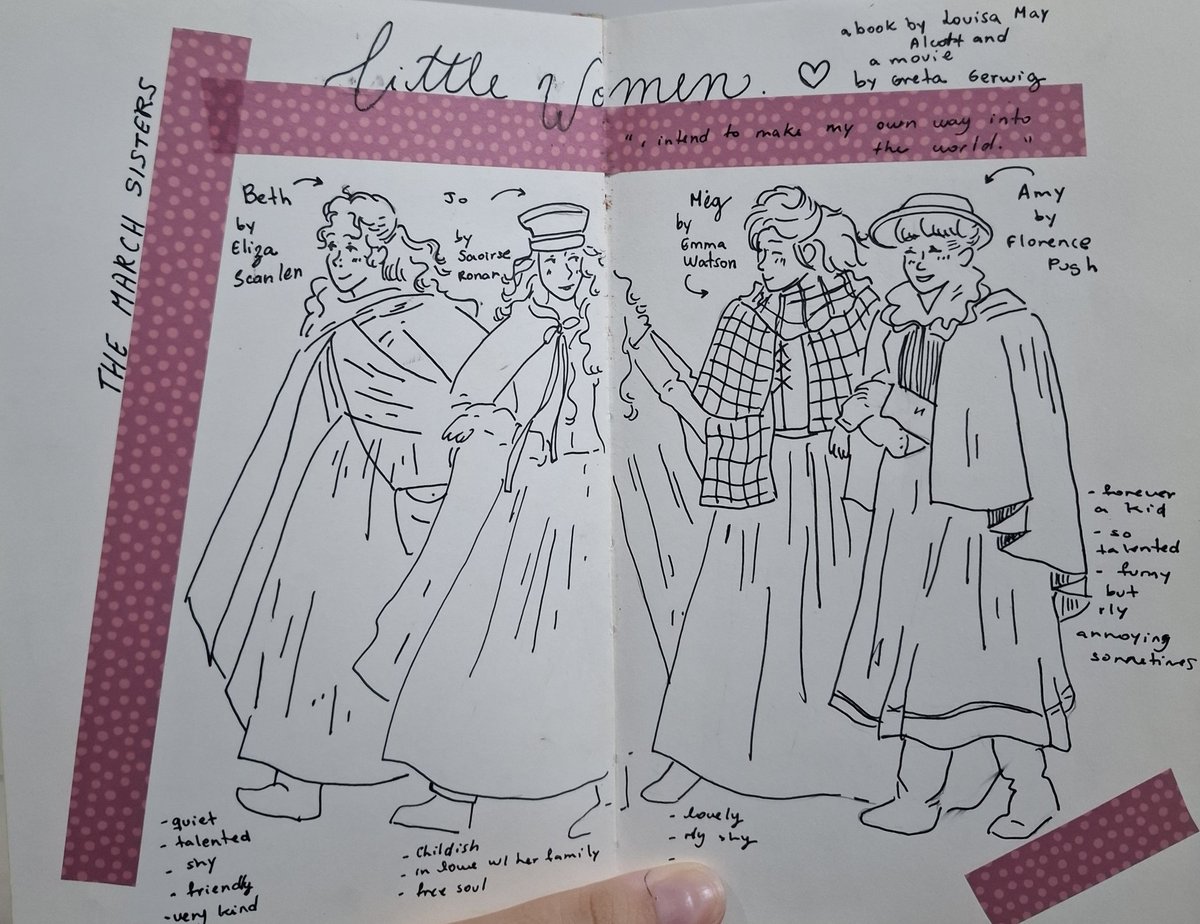 Little Women.
a book by Louisa May
Alcott and
a movie
by Greta Gerwig
", intend to make my own way into
the world. "
THE MARCH SISTERS
Beth
by
Eliza
Scanlen
Jo
by
Saoirse
Ronan
Meg
by
Emma
Watson
Amy
by
Florence
Pugh
- forever
a kid
- so
talented
- funny
but
rly
annoying
sometimes
- quiet
- talented
shy
- friendly
- very kind
- Childish
- in love w/ her family
- free soul
- lovely
- rly shy
-